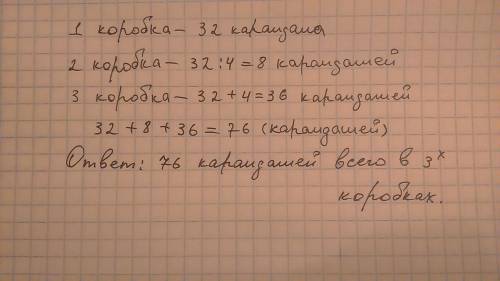 1 коробка – 32 карандаша
2 коробка – 32 : 4 = 8 карандашей
3 коробка – 32 + 4 = 36 карандашей
32 + 8 + 36 = 76 (карандашей)
Ответ: 76 карандашей всего в 3ˣ
коробках.